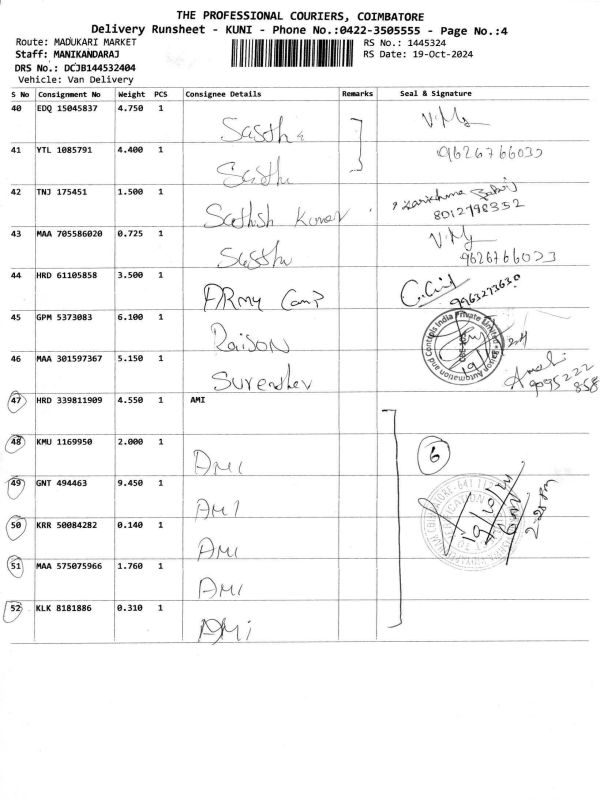 THE PROFESSIONAL COURIERS, COIMBATORE
Delivery Runsheet - KUNI - Phone No.:0422-3505555 - Page No.:4
Route: MADUKARI MARKET RS No.: 1445324
Staff: MANIKANDARAJ RS Date: 19-Oct-2024
DRS No.: DCJB144532404
Vehicle: Van Delivery
S No Consignment No Weight PCS Consignee Details Remarks Seal & Signature
40 EDQ 15045837 4.750 1 Sastha
41 YTL 1085791 4.400 1 Sastha
42 TNJ 175451 1.500 1 Sathish Kumar 8012798352
43 MAA 705586020 0.725 1 Sastha
44 HRD 61105858 3.500 1 ARmy Camp 9963273630
45 GPM 5373083 6.100 1 Raison
46 MAA 301597367 5.150 1 Surendhev
9095222
858
47 HRD 339811909 4.550 1 AMI
48 KMU 1169950 2.000 1 AMI 6
49 GNT 494463 9.450 1 AMI
50 KRR 50084282 0.140 1 AMI 19/10/24
51 MAA 575075966 1.760 1 AMI
52 KLK 8181886 0.310 1 AMI